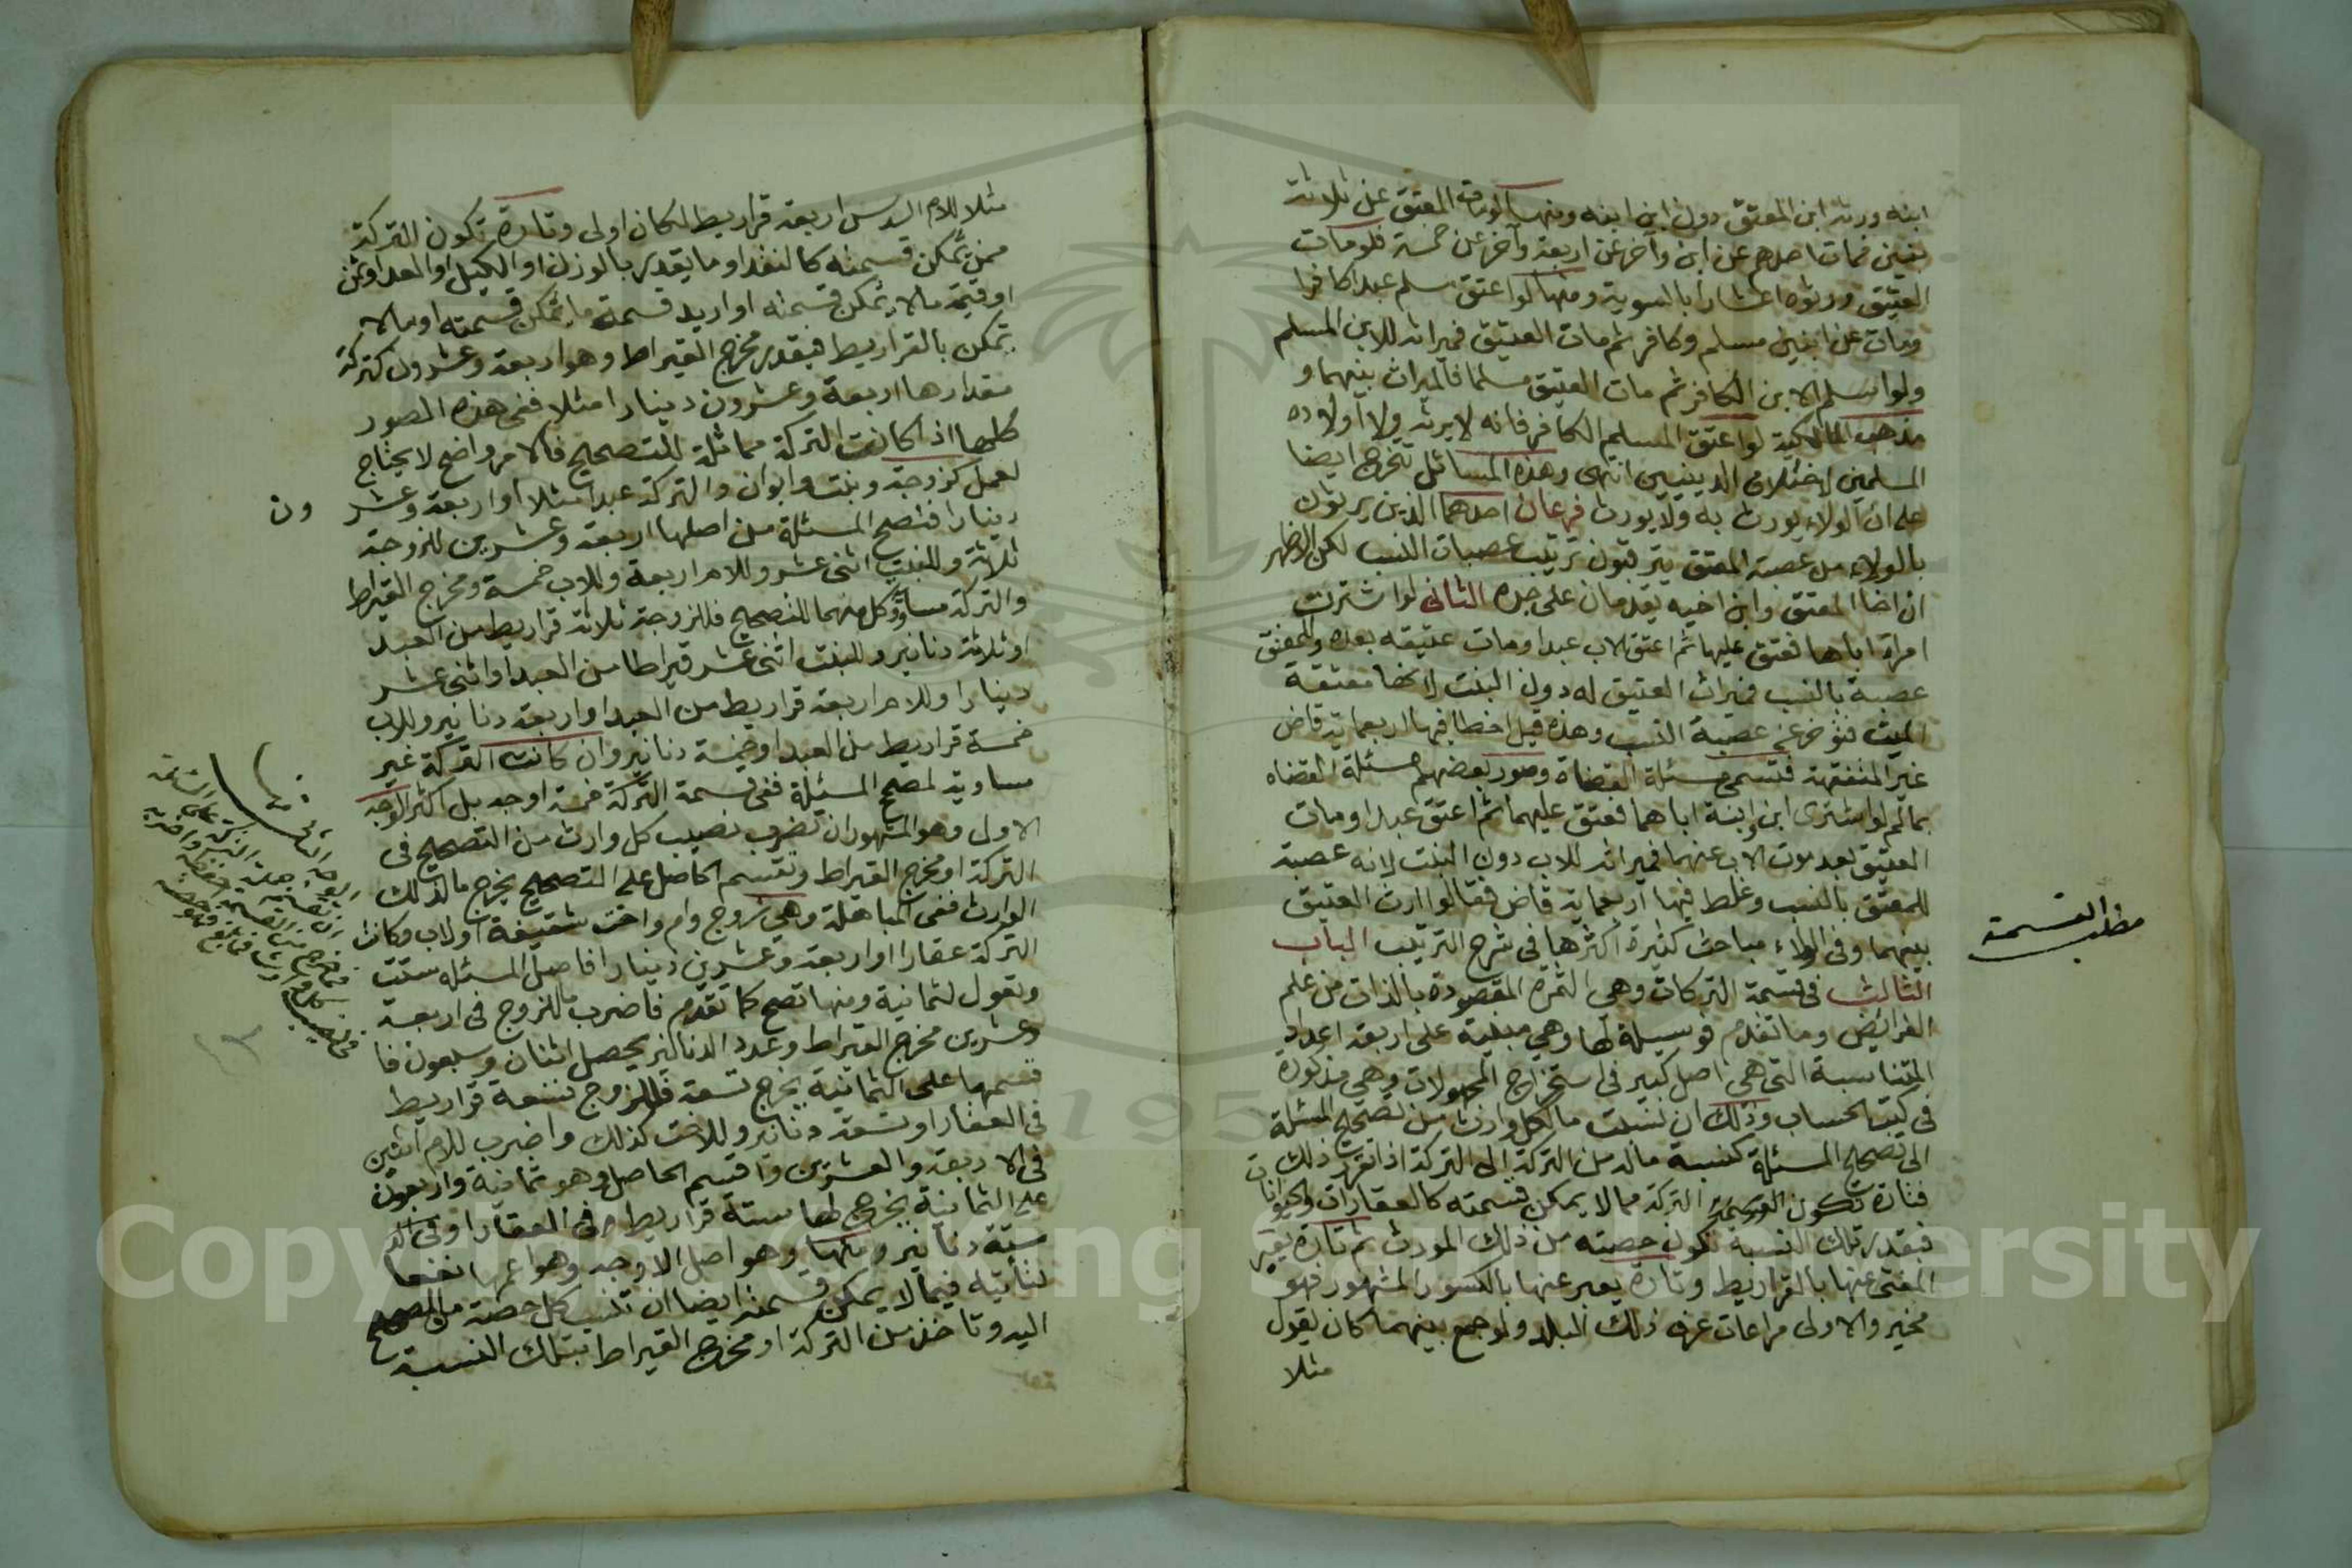 ابنه ورثه ابن المعتق دون ابن ابنه ومنها لو مات المعتق عن ثلاثة
بنين فمات احدهم عن ابن واخر عن اربعة وآخر عن خمسة فلو مات
العتيق ورثوه اعشارا بالسوية ومنها لو اعتق مسلم عبدا كافرا
ومات عن ابنين مسلم وكافر ثم مات العتيق فميراثه للابن المسلم
ولو اسلم الابن الكافر ثم مات العتيق مسلما فالميراث بينهما و
مذهب المالكية لو اعتق المسلم الكافر فانه لا يرثه ولا اولاده
المسلمين لاختلاف الدينين انتهى وهذه المسائل تتخرج ايضا
على ان الولاء يورث به ولا يورث فرعان احدهما الذين يرثون
بالولاء من عصبة المعتق يترتبون ترتيب عصبات النسب لكن الاظهر
ان اخا المعتق وابن اخيه يقدمان على جده الثاني لو اشترت
امراة اباها فعتق عليها ثم اعتق الاب عبدا ومات عتيقه بعده وللمعتق
عصبة بالنسب فميراث العتيق له دون البنت لانها معتقة
الميت فتؤخر عن عصبة النسب وهذه قيل اخطا فيها اربعماية قاض
غير المتفقهة فتسمى مسئلة القضاة وصور بعضهم مسئلة القضاه
بما لو اشترى ابن وابنة اباهما فعتق عليهما ثم اعتق عبدا ومات
العتيق بعد موت الاب عنهما فميراثه للاب دون البنت لانه عصبة
للمعتق بالنسب وغلط فيها اربعماية قاض فقالوا ارث العتيق
بينهما وفي الولاء مباحث كثيرة اكثرها في شرح الترتيب الباب
الثالث في قسمة التركات وهي الثمرة المقصودة بالذات من علم
الفرائض وما تقدم فوسيلة لها وهي مبنية على اربعة اعداد
المتناسبة التي هي اصل كبير في استخراج المجهولات وهي مذكورة
في كتب الحساب وذلك ان نسبت ما لكل وارث من تصحيح المسئلة
الى تصحيح المسئلة كنسبة ماله من التركة الى التركة اذا تقرر ذلك
فتارة تكون التركة مما لا يمكن قسمته كالعقارات والحيوانات
فبقدر تلك النسبة تكون حصته من ذلك الموروث ثم تارة يعبر
المفتي عنها بالقراريط وتارة يعبر عنها بالكسور المشهور فهو
مخير والاولى مراعات عرف ذلك البلد ولو جمع بينهما كان يقول
مثلا
مطلب القسمة
مثلا للام السدس اربعة قراريط لكان اولى وتارة تكون التركة
ممن تمكن قسمته كالنقد او ما يقدر بالوزن او الكيل او العد او ثمن
او قيمة مالا يمكن قسمته او اريد قسمة ما يمكن قسمته او مالا
تمكن بالقراريط فيقدر مخرج القيراط وهو اربعة وعشرون كتركة
مقدارها اربعة وعشرون دينارا مثلا ففي هذه الصور
كلها اذا كانت التركة مماثلة للتصحيح فالامر واضح لا يحتاج
لعمل كزوجة وبنت وابوان والتركة عبدا مثلا او اربعة وعشر
ون
دينارا فتصح المسئلة من اصلها اربعة وعشرين للزوجة
ثلاثة وللبنت اثني عشر وللام اربعة وللاب خمسة ومخرج القيراط
والتركة مساو كل منهما للتصحيح فللزوجة ثلاثة قراريط من العبد
او ثلاثة دنانير وللبنت اثني عشر قيراطا من العبد او اثني عشر
دينارا وللام اربعة قراريط من العبد او اربعة دنانير وللاب
خمسة قراريط من العبد او خمسة دنانير وان كانت التركة غير
مساوية لمصح المسئلة ففي قسمة التركة خمسة اوجه بل اكثر الوجه
الاولى وهو المشهور ان تضرب نصيب كل وارث من التصحيح في
التركة او مخرج القيراط وتقسم الحاصل على التصحيح يخرج ما لذلك
الوارث ففي المباهلة وهي زوج وام واخت شقيقة او لاب وكانت
التركة عقارا او اربعة وعشرين دينارا فاصل المسئله ستة
وتعول لثمانية ومنها تصح كما تقدم فاضرب ما للزوج في اربعة
وعشرين مخرج القيراط وعدد الدنانير يحصل اثنان وسبعون فا
قسمها على الثمانية يخرج تسعة فللزوج تسعة قراريط
في العقار او تسعة دنانير وللاخت كذلك واضرب للام اثنين
في الاربعة والعشرين واقسم الحاصل وهو ثمانية واربعون
على الثمانية يخرج لها ستة قراريط في العقار او في
ستة دنانير ومنها وهو اصل الاوجه وهو اعمها نفعا
لتأتيه فيما لا يمكن قسمته ايضا ان تنسب كل حصة من المصحح
اليه وتاخذ من التركة او مخرج القيراط بتلك النسبة
Copyright © King Saud University
195